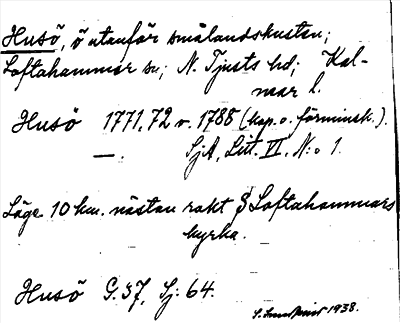 Husö, ö utanför smålandskusten;
Loftahammar sn; N. Tjusts hd; Kal-
mar l.
Husö 1771.72 o. 1788 (kop. o. förminsk.).
—. SjA, Litt. VI. N:o 1.
Läge 10 km. nästan rakt S Loftahammars
kyrka.
Husö G. 37, Sj: 64.
1938.